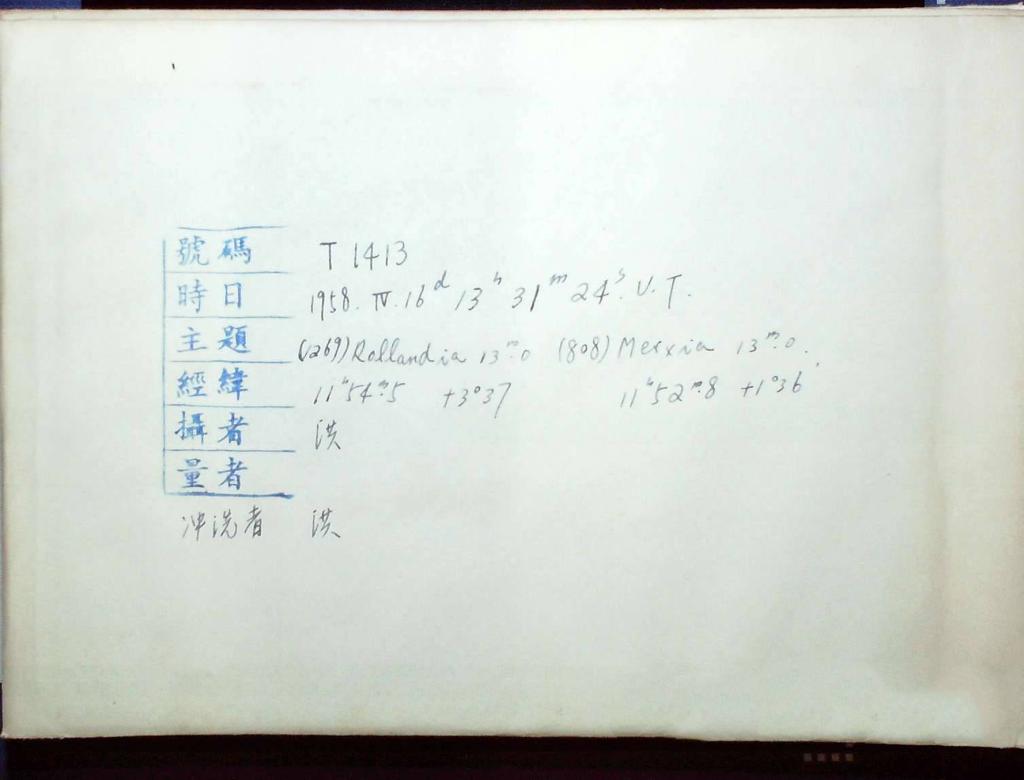 號碼 T 1413
時日 1958. IV. 16ᵈ 13ʰ 31ᵐ 24ˢ. U. T.
主題 (1269) Rollandia 13ᵐ.0 (808) Merxia 13ᵐ.0.
經緯 11ʰ54ᵐ.5 +3°37 11ʰ52ᵐ.8 +1°36'
攝者 洪
量者
冲洗者 洪